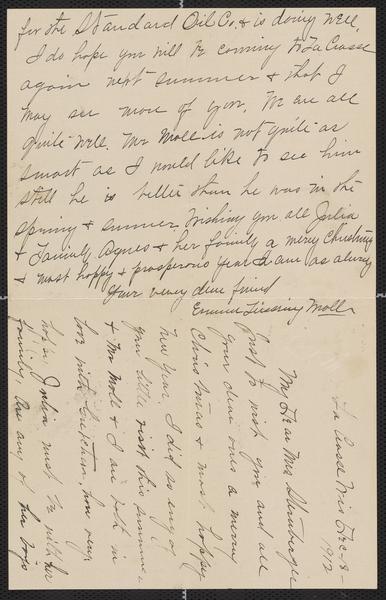 La Crosse Wis Dec 18 -
1912
My Dear Mrs
Just to wish you and all
your dear ones a merry
Christmas & most happy
New Year. I did so enjoy
your little visit this summer.
& Mr Moll & I are both in
love with Gretchen, how very
Julia must be with her
family. Are any of her boys
for the Standard Oil Co. & is doing well.
I do hope you will be coming to La Crosse
again next summer & that I
may see more of you. We are all
quite well. Mr Moll is not quite as
smart as I would like to see him
still he is better than he was in the
spring & summer. Wishing you all Julia
& Family Agnes & her family a merry Christmas
& most happy & prosperous year I am as always
Your very dear friend
Emma Moll